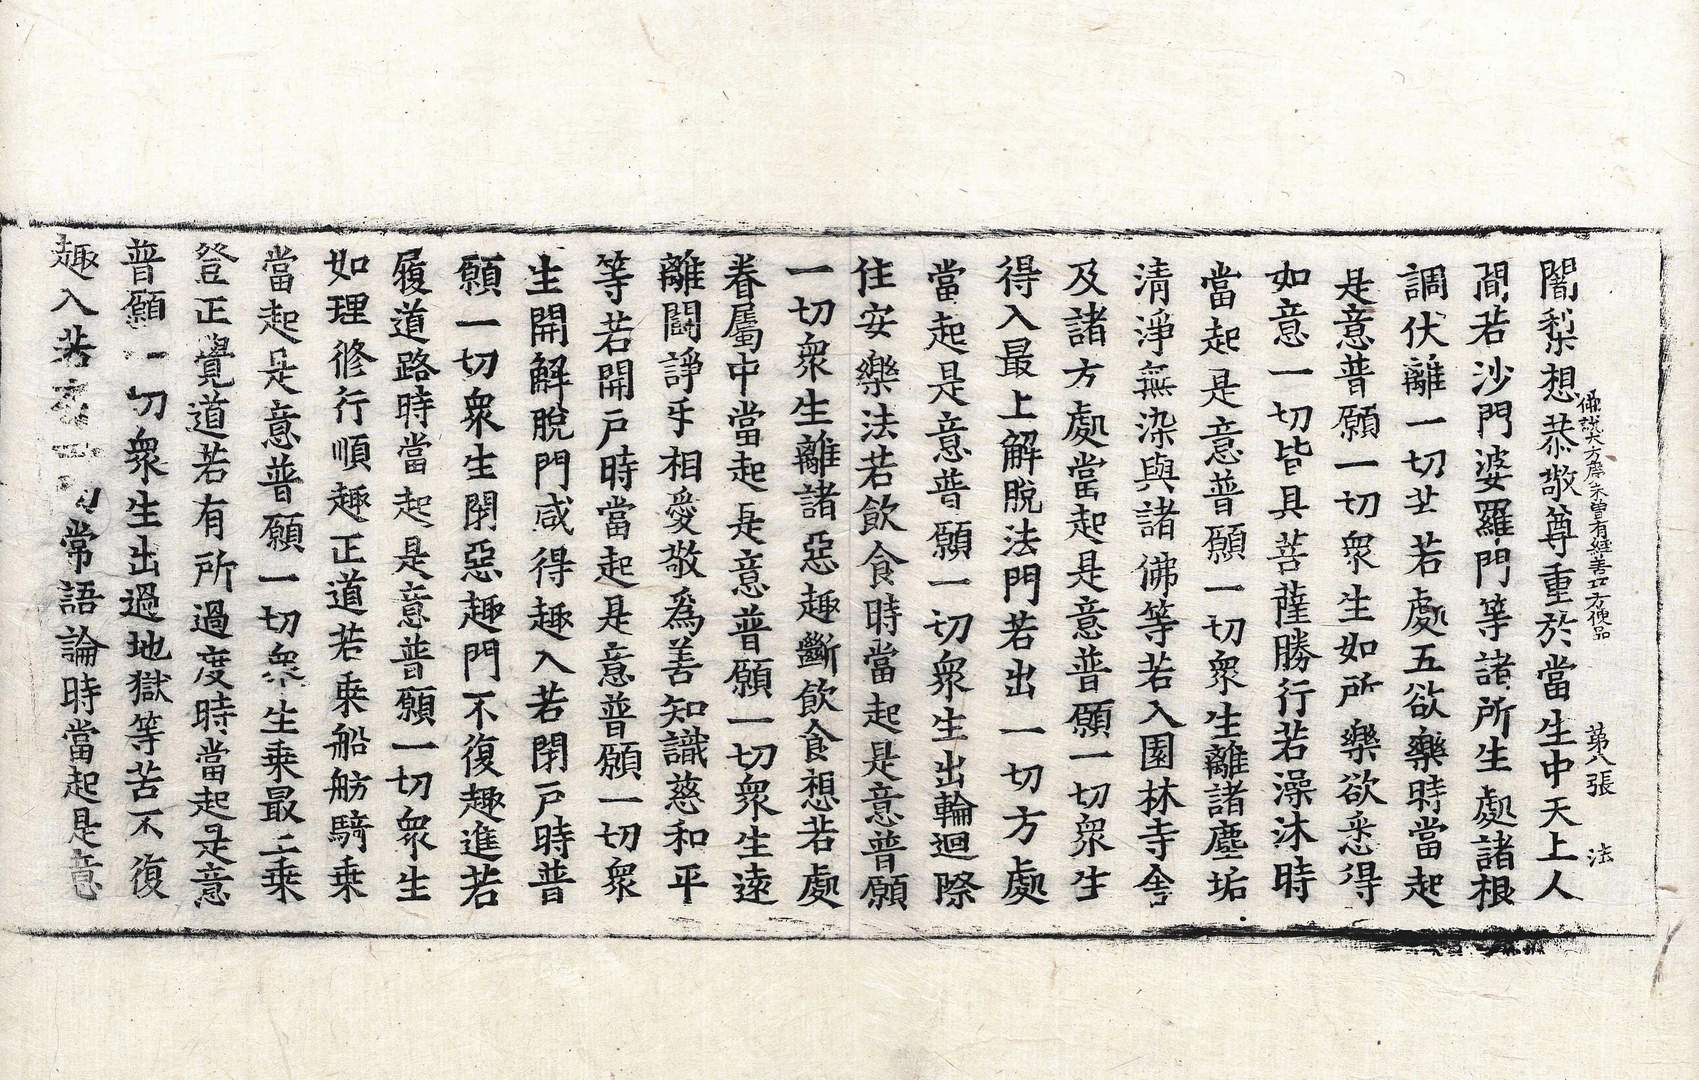 佛說大方廣未曾有經善巧方便品　第八張　法
闍梨想恭敬尊重於當生中天上人
間若沙門婆羅門等諸所生處諸根
調伏離一切𦬇若處五欲樂時當起
是意普願一切衆生如所樂欲悉得
如意一切皆具菩薩勝行若澡沐時
當起是意普願一切衆生離諸塵垢
清淨無染與諸佛等若入園林寺舍
及諸方處當起是意普願一切衆生
得入最上解脫法門若出一切方處
當起是意普願一切衆生出輪迴際
住安樂法若飲食時當起是意普願
一切衆生離諸惡趣斷飲食想若處
眷屬中當起是意普願一切衆生遠
離鬪諍乎相愛敬爲善知識慈和平
等若開戶時當起是意普願一切衆
生開解脫門咸得趣入若閉戶時普
願一切衆生閉惡趣門不復趣進若
履道路時當起是意普願一切衆生
如理修行順趣正道若乘船舫騎乘
當起是意普願一切衆生乘最上乘
登正覺道若有所過度時當起是意
普願一切衆生出過地獄等苦不復
趣入若常語論時當起是意